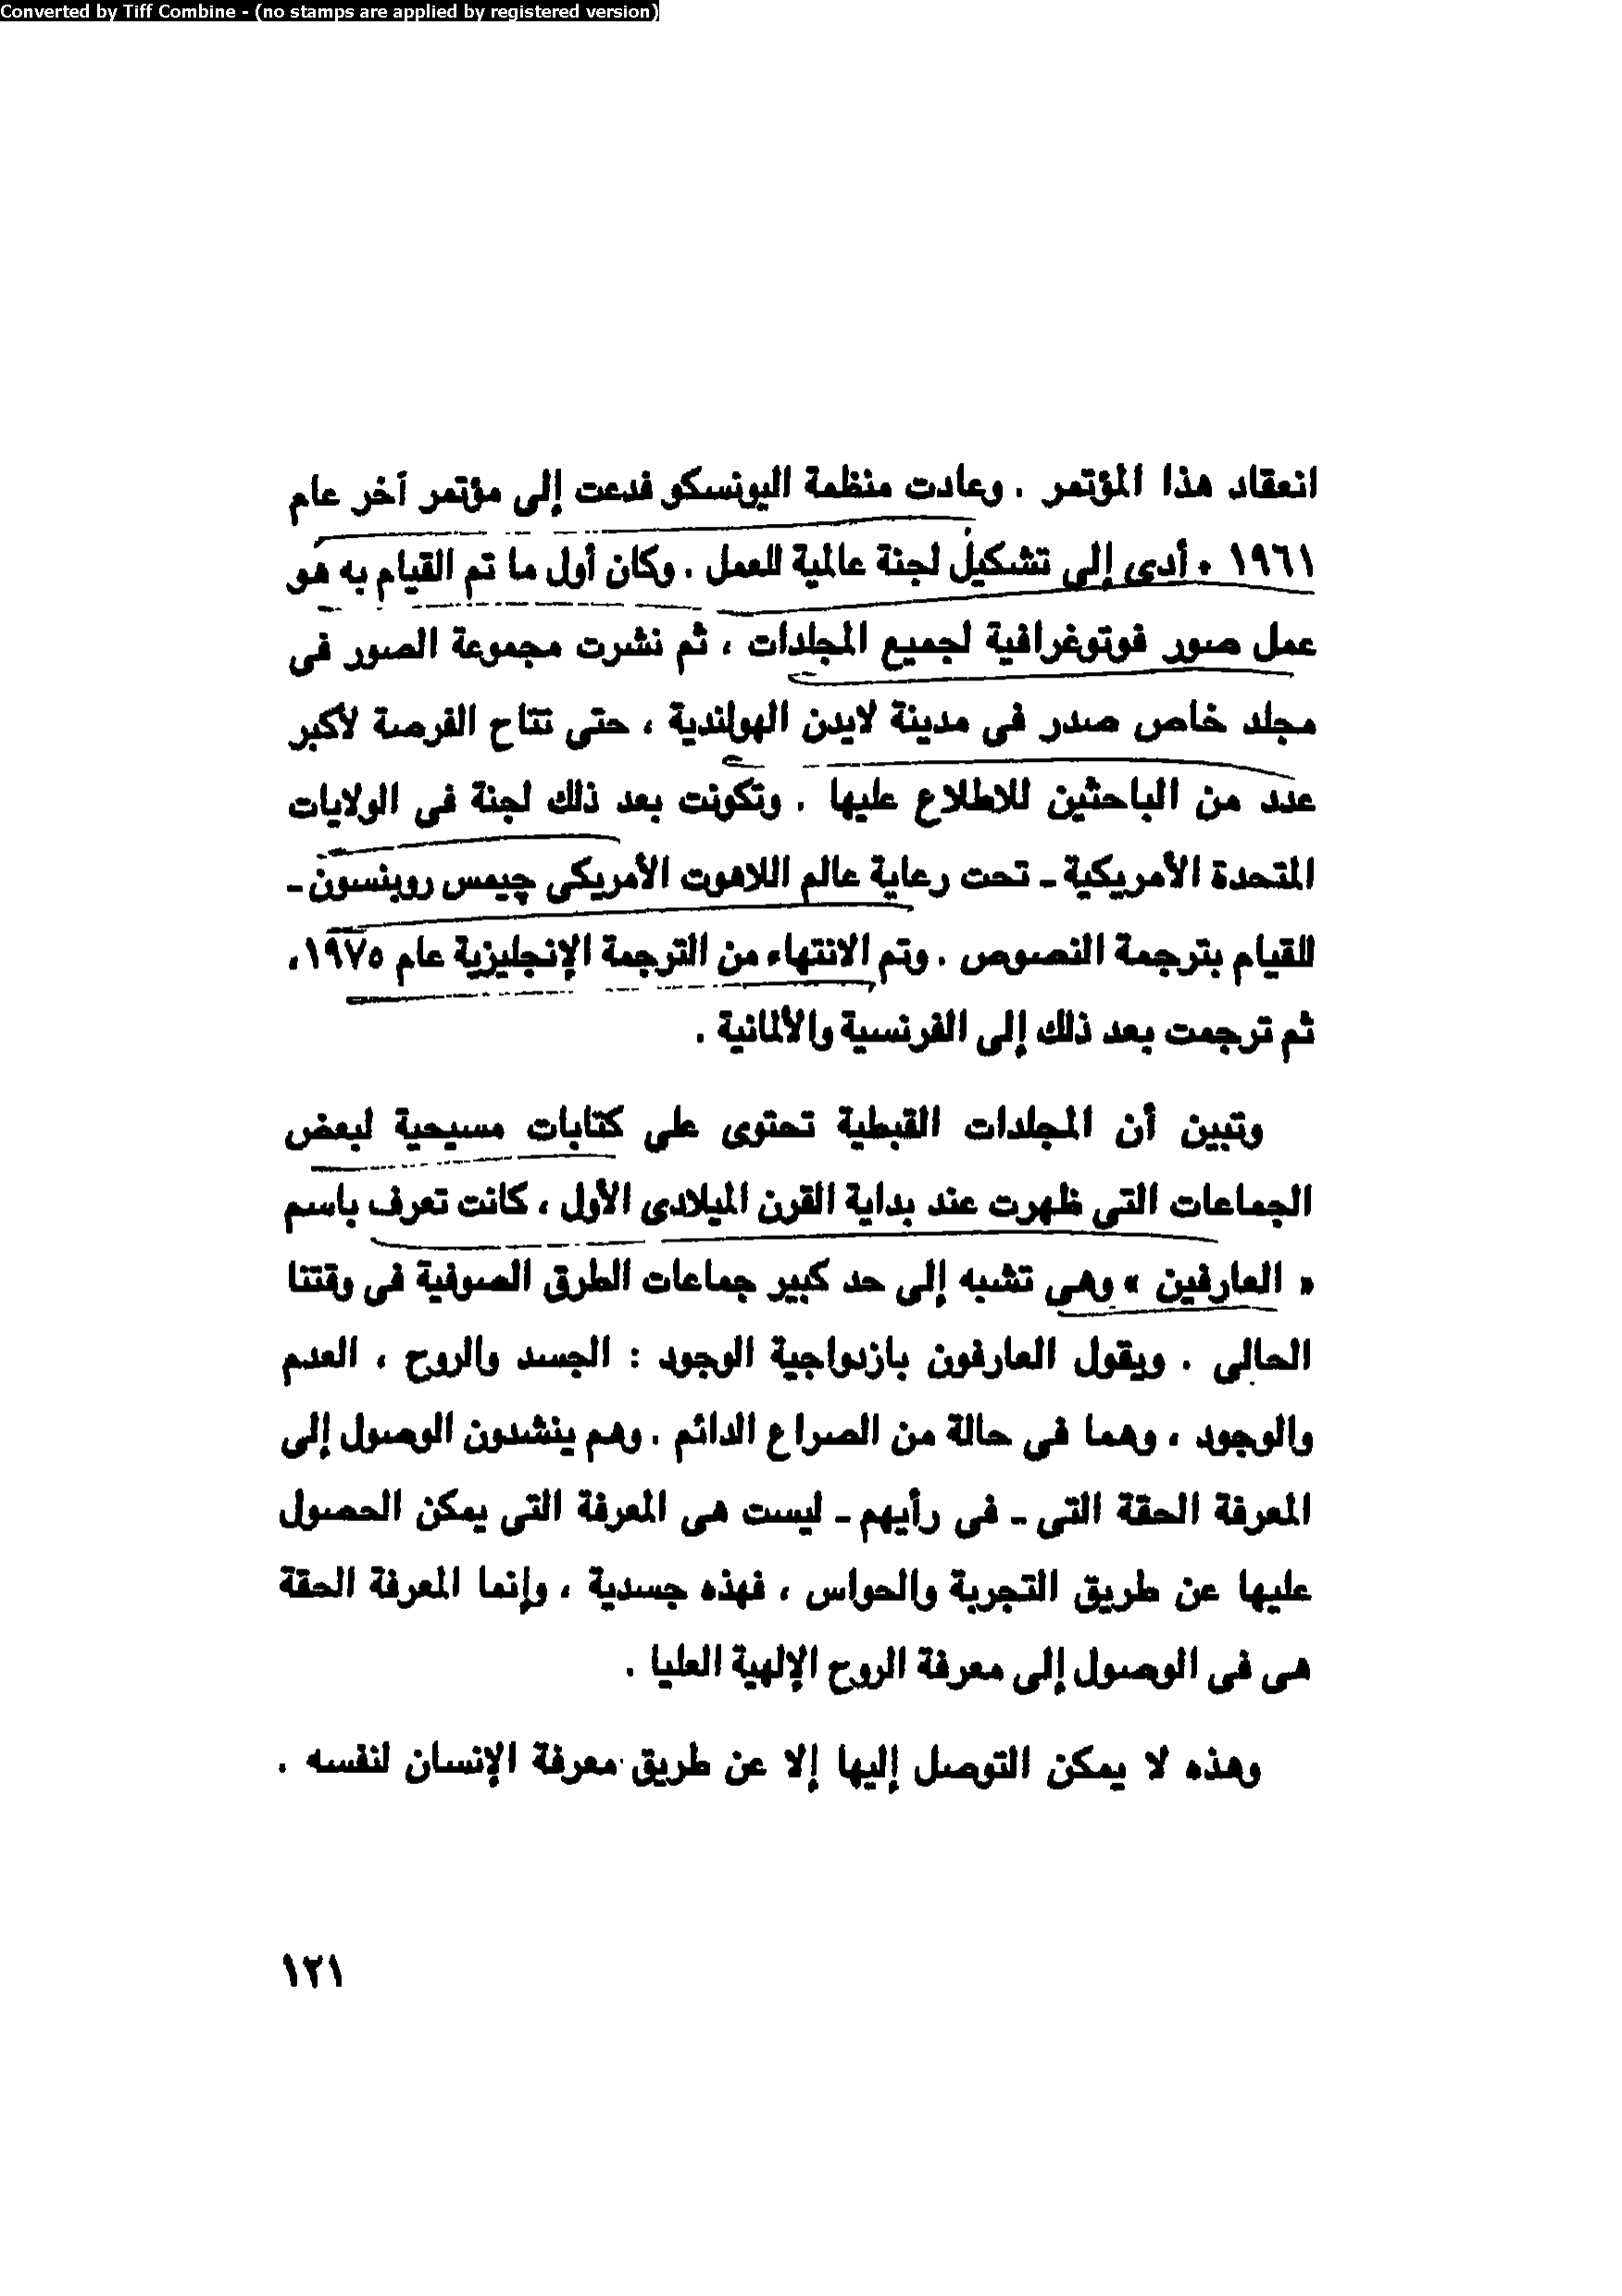 Converted by Tiff Combine - (no stamps are applied by registered version)
انعقاد هذا المؤتمر . وعادت منظمة اليونسكو فدعت إلى مؤتمر آخر عام
١٩٦١ ، أدى إلى تشكيل لجنة عالمية للعمل . وكان أول ما تم القيام به هو
عمل صور فوتوغرافية لجميع المجلدات ، ثم نشرت مجموعة الصور فى
مجلد خاص صدر فى مدينة لايدن الهولندية ، حتى تتاح الفرصة لأكبر
عدد من الباحثين للاطلاع عليها . وتكونت بعد ذلك لجنة فى الولايات
المتحدة الأمريكية - تحت رعاية عالم اللاهوت الأمريكى چيمس روبنسون -
للقيام بترجمة النصوص . وتم الانتهاء من الترجمة الإنجليزية عام ١٩٧٥،
ثم ترجمت بعد ذلك إلى الفرنسية والألمانية .
وتبين أن المجلدات القبطية تحتوى على كتابات مسيحية لبعض
الجماعات التى ظهرت عند بداية القرن الميلادى الأول ، كانت تعرف باسم
« العارفين » وهى تشبه إلى حد كبير جماعات الطرق الصوفية فى وقتنا
الحالى . ويقول العارفون بازدواجية الوجود : الجسد والروح ، العدم
والوجود ، وهما فى حالة من الصراع الدائم . وهم ينشدون الوصول إلى
المعرفة الحقة التى - فى رأيهم - ليست هى المعرفة التى يمكن الحصول
عليها عن طريق التجربة والحواس ، فهذه جسدية ، وإنما المعرفة الحقة
هى فى الوصول إلى معرفة الروح الإلهية العليا .
وهذه لا يمكن التوصل إليها إلا عن طريق معرفة الإنسان لنفسه .
١٢١